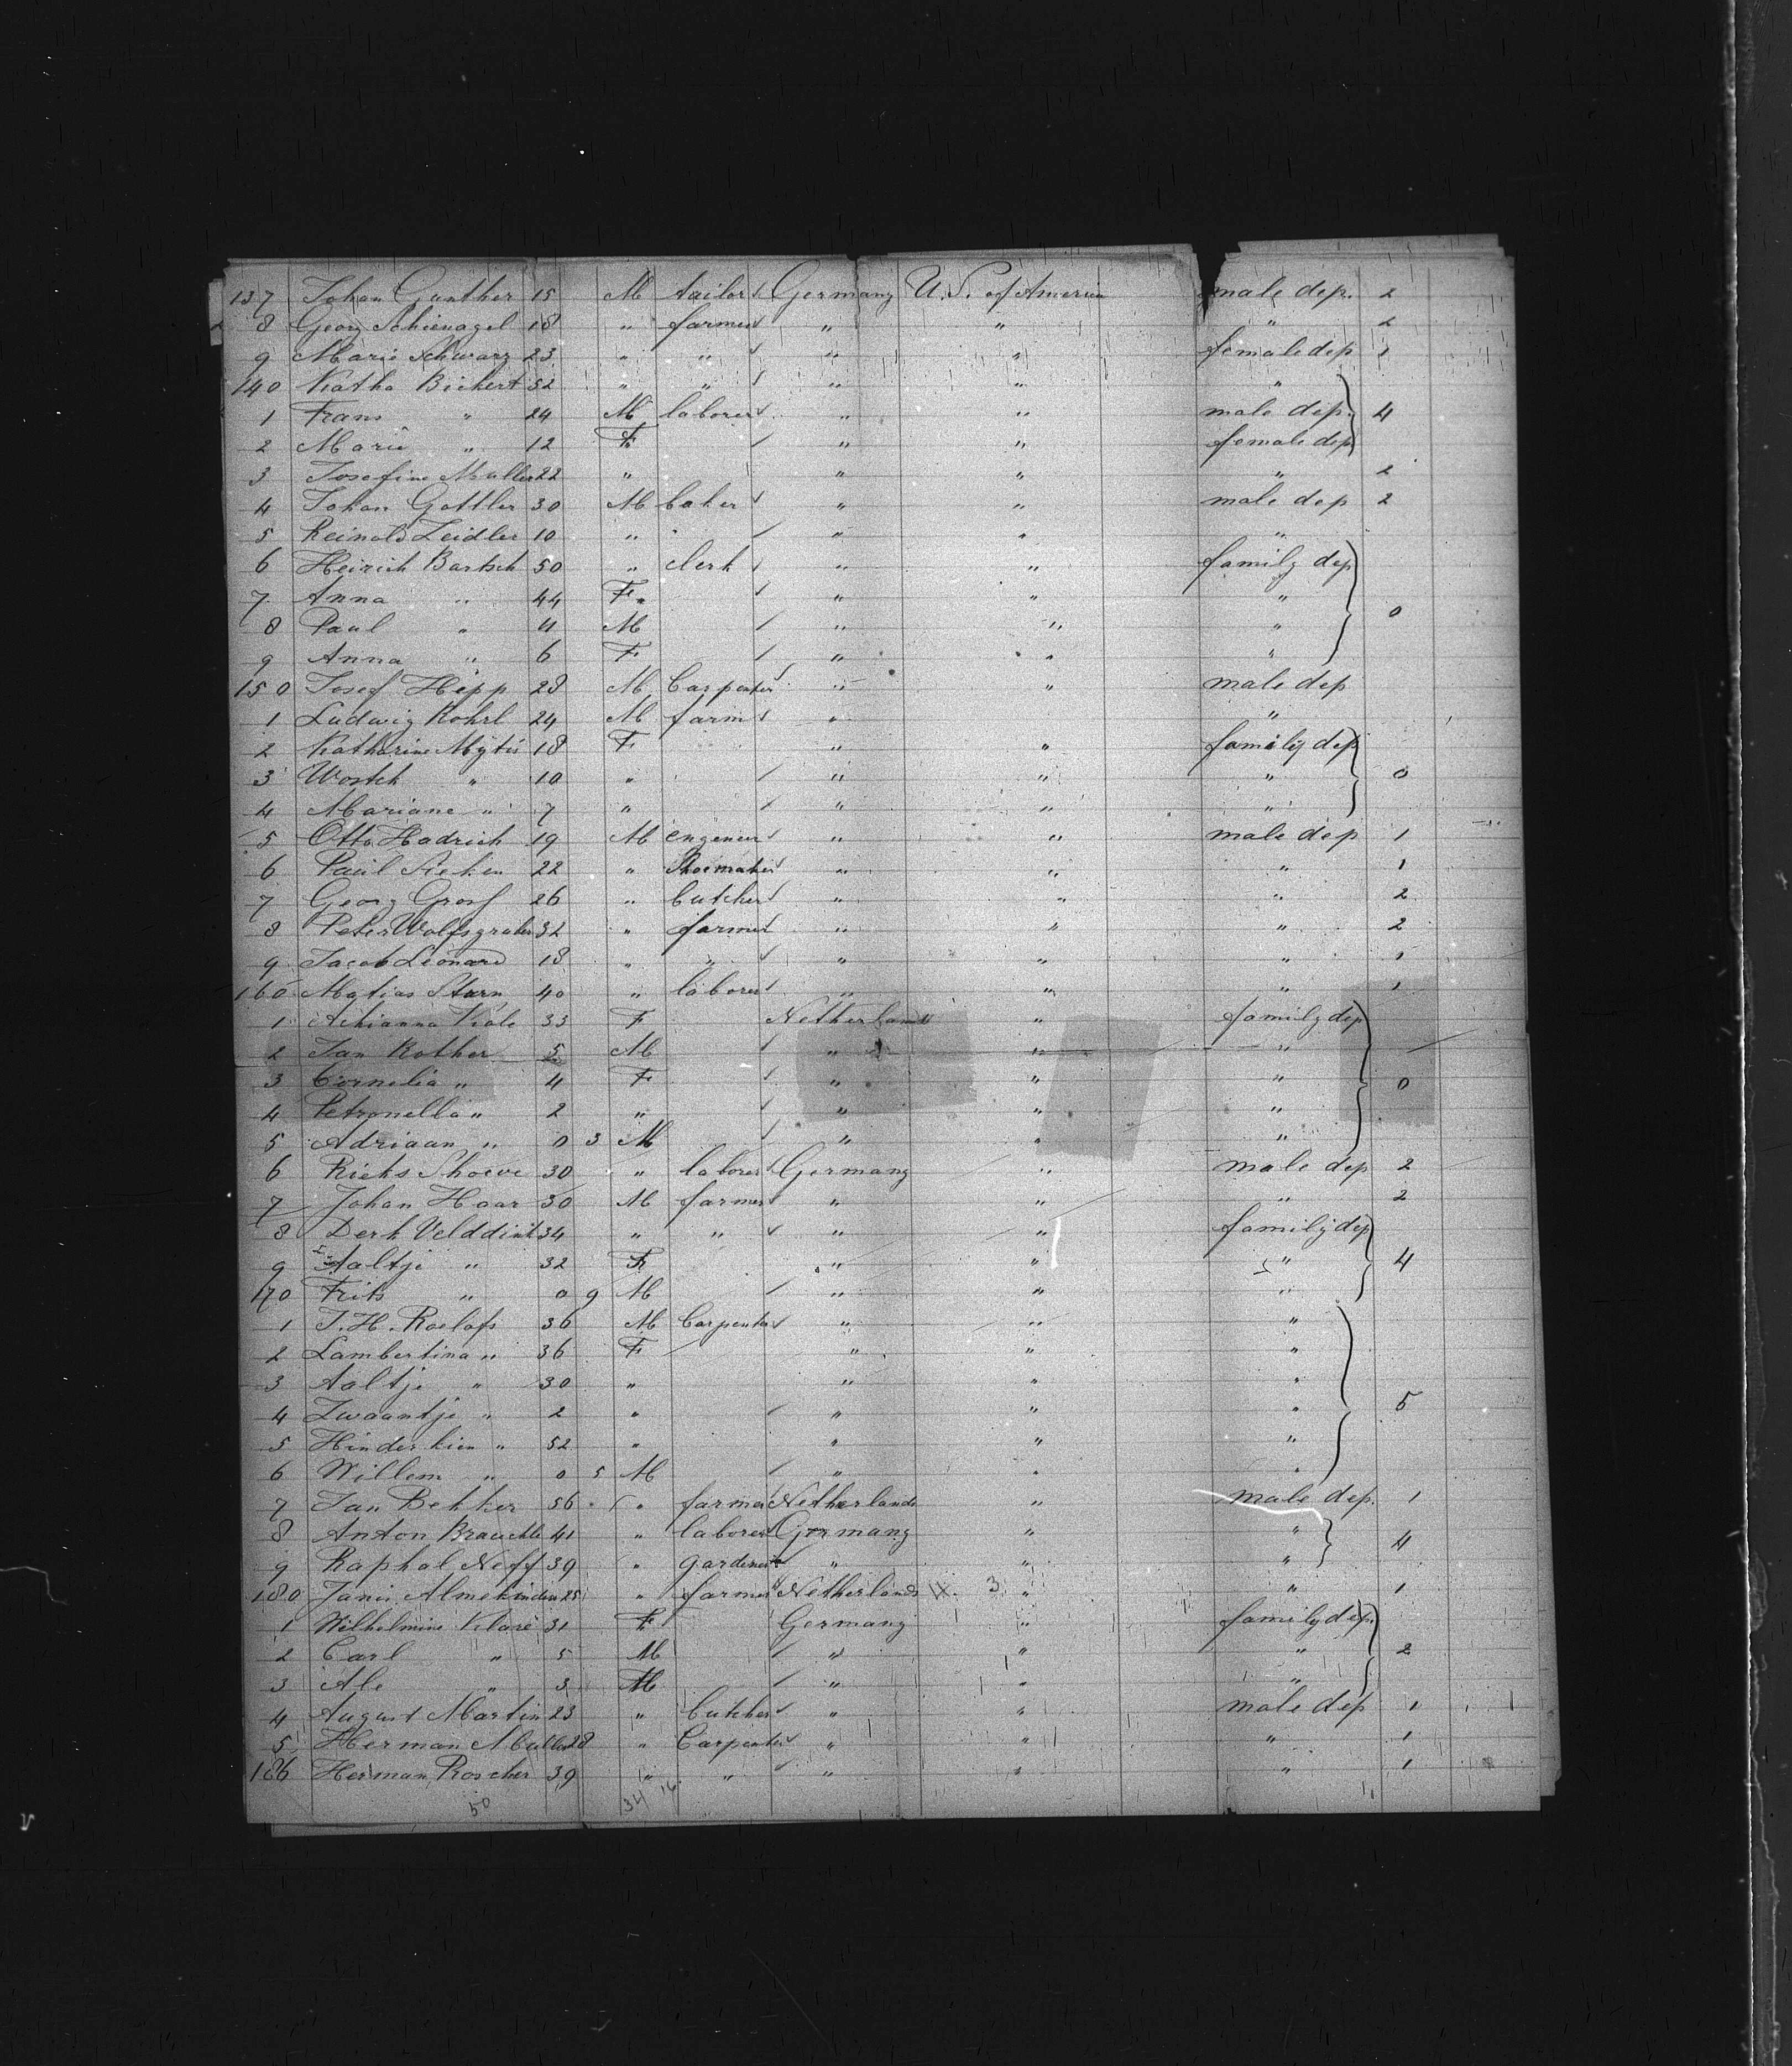 137 Johan Gunther 15 M tailor Germany U.S. of America male dep. 2
8 Georg Schienagel 18 " farmer " " " 2
9 Marie Schwarz 23 " " " " female dep 1
140 Katha Bickert 52 " " " " "
1 Frans " 24 M laborer " " male dep. 4
2 Marie " 12 F " " female dep
3 Josefine Muller 22 " " " " 2
4 Johan Gottler 30 M baker " " male dep 2
5 Reinold Zeidler 10 " " " "
6 Heirich Bartsch 50 " clerk " " family dep
7 Anna " 44 F " " "
8 Paul " 11 M " " " 0
9 Anna " 6 F " " "
150 Josef Hepp 28 M Carpenter " " male dep
1 Ludwig Rohrl 24 M farm " " "
2 Katharine Mytis 18 F " " family dep
3 " 10 " " " " 0
4 Mariane " 7 " " " "
5 Otto Hadrich 19 M engeneer " " male dep 1
6 Paul 22 " Shoemaker " " " 1
7 Georg Grosf 26 " butcher " " " 2
8 Peter Wolfsgruber 32 " farmer " " " 2
9 Jacob Leonard 18 " " " " " 1
160 Matias Sturn 40 " laborer " " " 1
1 Adrianna Kole 33 F Netherland " family dep
2 Jan Rother 5 M " " "
3 Cornelia " 4 F " " " 0
4 Petronella " 2 " " " "
5 Adriaan " 0 3 M " " "
6 Rieks Shoeve 30 " laborer Germany " male dep 2
7 Johan Haar 30 M farmer " " " 2
8 Derk Velddink 34 " " " " family dep
9 Aaltje " 32 F " " " 4
170 Frits " 0 9 M " " "
1 J.H. Roelofs 36 M Carpenter " " "
2 Lambertina " 36 F " " "
3 Aaltje " 30 " " " "
4 Zwaantje " 2 " " " " 5
5 Hinderkien " 52 " " " "
6 Willem " 0 5 M " " "
7 Jan Bekker 56 " farmer Netherlands " male dep. 1
8 Anton Brauchle 41 " laborer Germany " " 4
9 Raphal Neff 39 " gardener " " "
180 Janis Almekinders 25 " farmer Netherlands 3 " " 1
1 Wilhelmine Klare 31 F Germany " family dep.
2 Carl " 5 M " " " 2
3 Ale " 3 M " " "
4 August Martin 23 " butcher " " male dep 1
5 Herman Muller 28 " Carpenter " " " 1
186 Herman Roscher 39 " " " " " 1
50 34 16